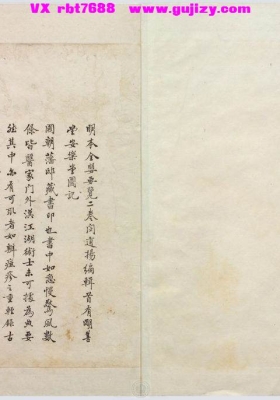 VX rbt7688 www.gujizy.com
明本全嬰要覽二卷閔道揚編輯首有明善
堂安樂堂圖記
國朝藩邸藏書印也書中如急慢驚風數
條皆醫家門外漢江湖術士未可據為典要
然其中亦有可取者如辨痘疹之重輕錄古